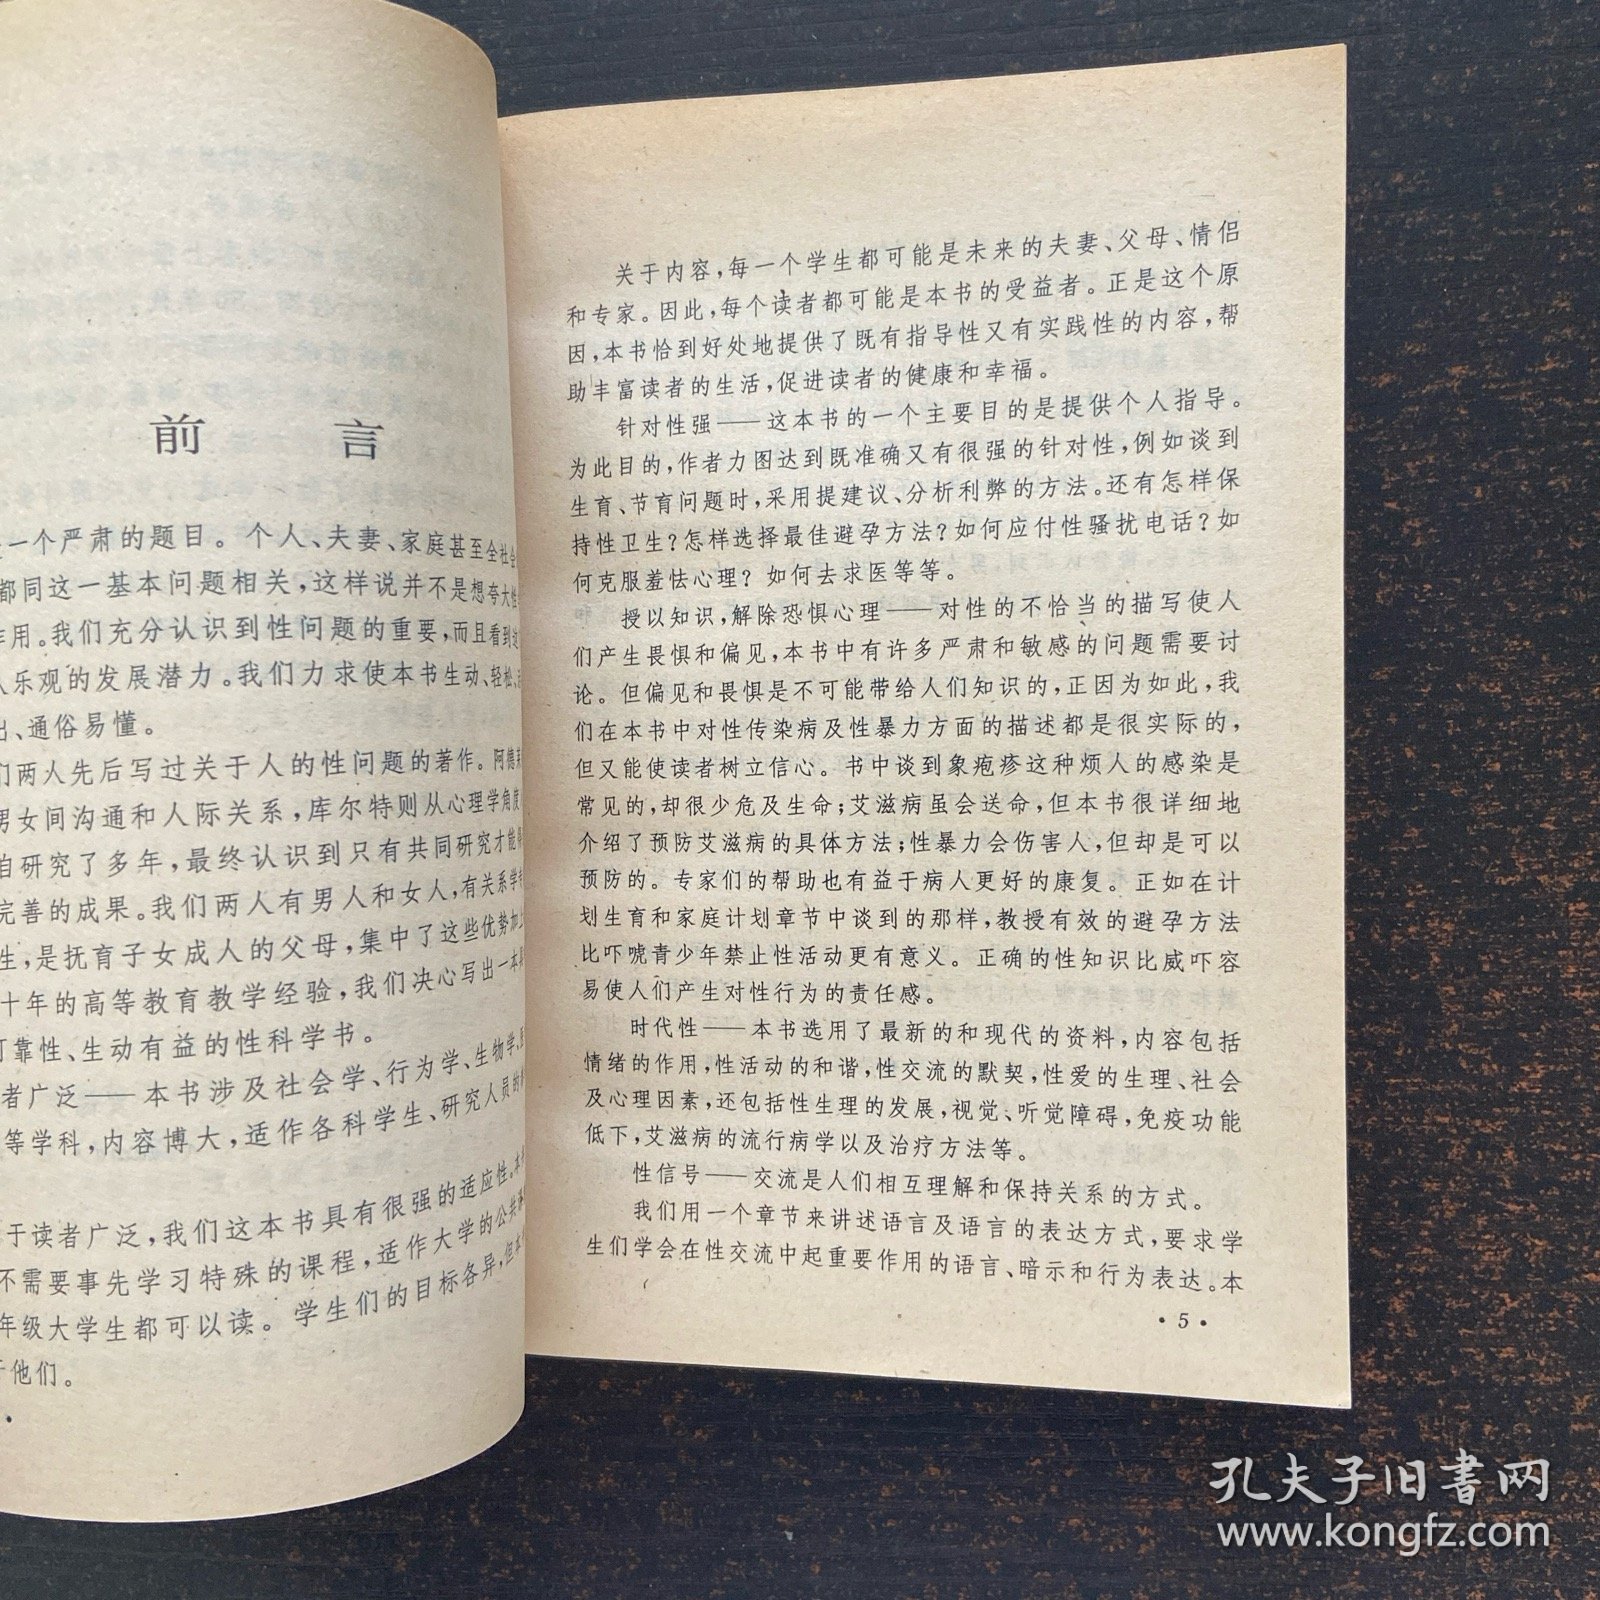 前言
一个严肃的题目。个人、夫妻、家庭甚至全社会
都同这一基本问题相关,这样说并不是想夸大性
作用。我们充分认识到性问题的重要,而且看到这
乐观的发展潜力。我们力求使本书生动、轻松、
出、通俗易懂。
们两人先后写过关于人的性问题的著作。阿德
男女间沟通和人际关系,库尔特则从心理学角度
自研究了多年,最终认识到只有共同研究才能
完善的成果。我们两人有男人和女人,有关系学
生,是抚育子女成人的父母,集中了这些优势加上
十年的高等教育教学经验,我们决心写出一本
可靠性、生动有益的性科学书。
者广泛——本书涉及社会学、行为学、生物学、
等学科,内容博大,适作各科学生、研究人员的
于读者广泛,我们这本书具有很强的适应性。本
不需要事先学习特殊的课程,适作大学的公共
年级大学生都可以读。学生们的目标各异,但本
于他们。
关于内容,每一个学生都可能是未来的夫妻、父母、情侣
和专家。因此,每个读者都可能是本书的受益者。正是这个原
因,本书恰到好处地提供了既有指导性又有实践性的内容,帮
助丰富读者的生活,促进读者的健康和幸福。
针对性强——这本书的一个主要目的是提供个人指导。
为此目的,作者力图达到既准确又有很强的针对性,例如谈到
生育、节育问题时,采用提建议、分析利弊的方法。还有怎样保
持性卫生?怎样选择最佳避孕方法?如何应付性骚扰电话?如
何克服羞怯心理?如何去求医等等。
授以知识,解除恐惧心理——对性的不恰当的描写使人
们产生畏惧和偏见,本书中有许多严肃和敏感的问题需要讨
论。但偏见和畏惧是不可能带给人们知识的,正因为如此,我
们在本书中对性传染病及性暴力方面的描述都是很实际的,
但又能使读者树立信心。书中谈到象疱疹这种烦人的感染是
常见的,却很少危及生命;艾滋病虽会送命,但本书很详细地
介绍了预防艾滋病的具体方法;性暴力会伤害人,但却是可以
预防的。专家们的帮助也有益于病人更好的康复。正如在计
划生育和家庭计划章节中谈到的那样,教授有效的避孕方法
比吓唬青少年禁止性活动更有意义。正确的性知识比威吓容
易使人们产生对性行为的责任感。
时代性——本书选用了最新的和现代的资料,内容包括
情绪的作用,性活动的和谐,性交流的默契,性爱的生理、社会
及心理因素,还包括性生理的发展,视觉、听觉障碍,免疫功能
低下,艾滋病的流行病学以及治疗方法等。
性信号——交流是人们相互理解和保持关系的方式。
我们用一个章节来讲述语言及语言的表达方式,要求学
生们学会在性交流中起重要作用的语言、暗示和行为表达。本
·5·
孔夫子旧书网
www.kongfz.com